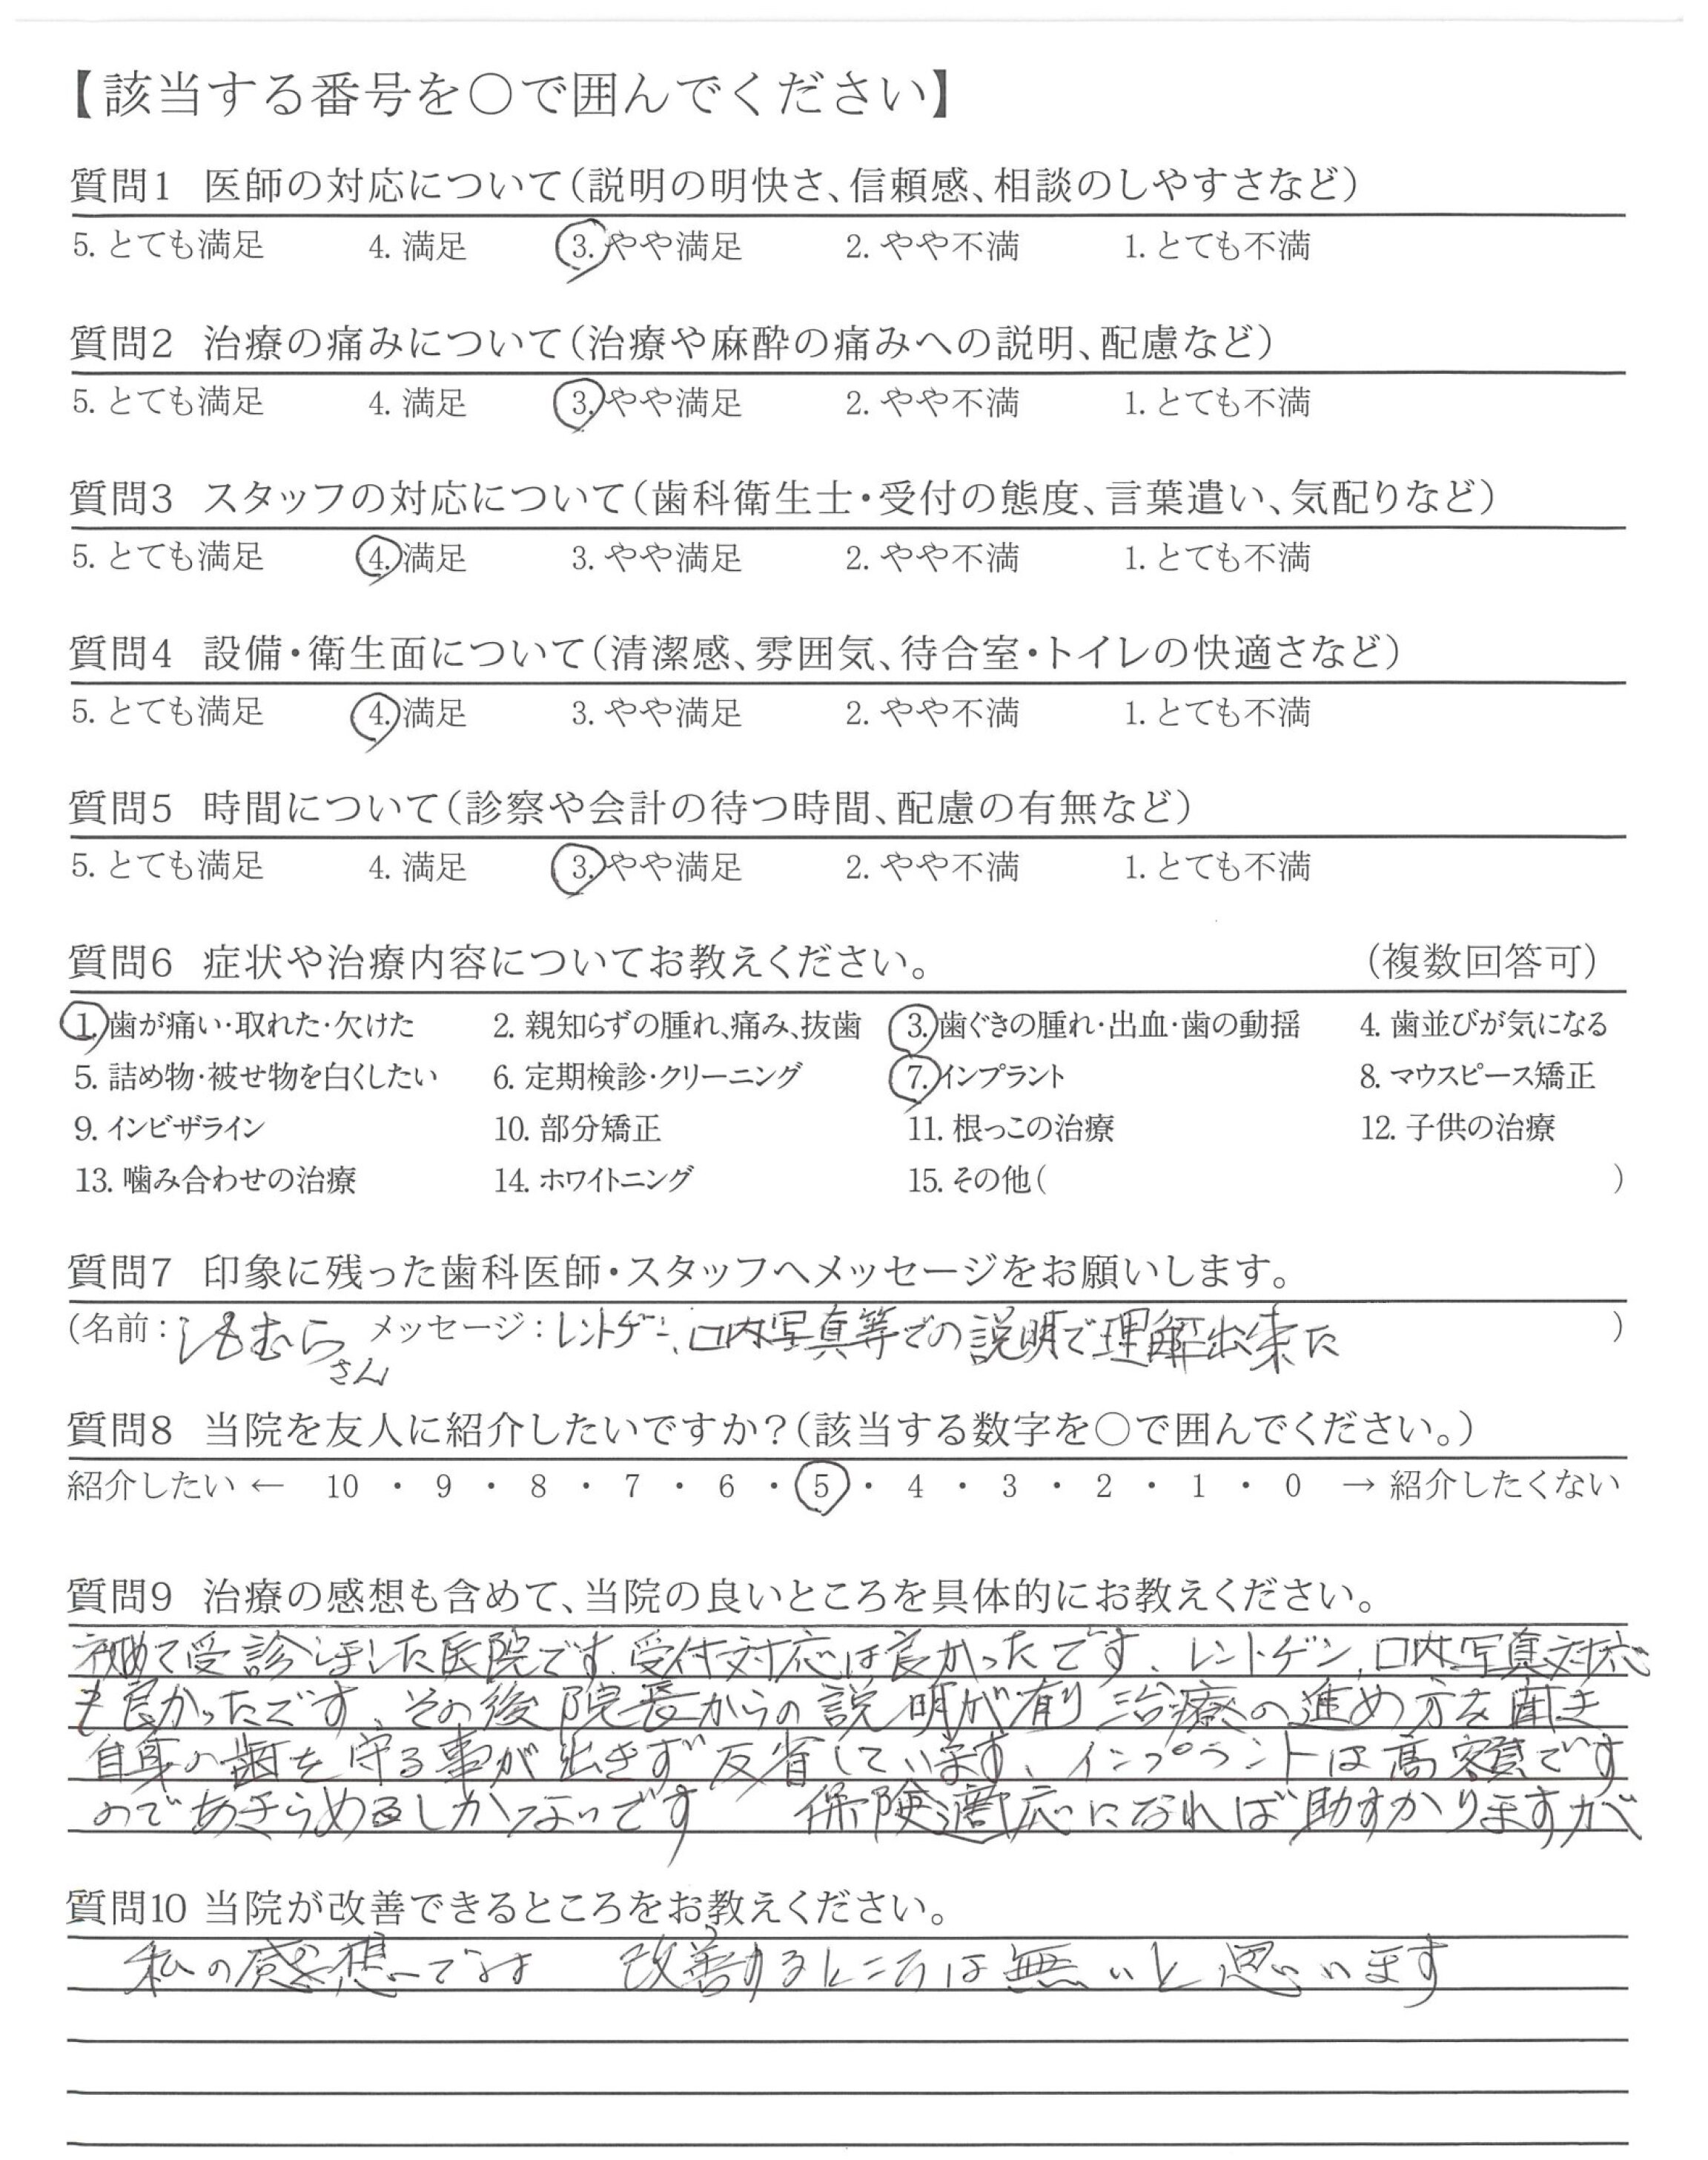 【該当する番号を○で囲んでください】
質問1 医師の対応について（説明の明快さ、信頼感、相談のしやすさなど）
5. とても満足 4. 満足 3. やや満足 2. やや不満 1. とても不満
質問2 治療の痛みについて（治療や麻酔の痛みへの説明、配慮など）
5. とても満足 4. 満足 3. やや満足 2. やや不満 1. とても不満
質問3 スタッフの対応について（歯科衛生士・受付の態度、言葉遣い、気配りなど）
5. とても満足 4. 満足 3. やや満足 2. やや不満 1. とても不満
質問4 設備・衛生面について（清潔感、雰囲気、待合室・トイレの快適さなど）
5. とても満足 4. 満足 3. やや満足 2. やや不満 1. とても不満
質問5 時間について（診察や会計の待つ時間、配慮の有無など）
5. とても満足 4. 満足 3. やや満足 2. やや不満 1. とても不満
質問6 症状や治療内容についてお教えください。 （複数回答可）
1. 歯が痛い・取れた・欠けた 2. 親知らずの腫れ、痛み、抜歯 3. 歯ぐきの腫れ・出血・歯の動揺 4. 歯並びが気になる
5. 詰め物・被せ物を白くしたい 6. 定期検診・クリーニング 7. インプラント 8. マウスピース矯正
9. インビザライン 10. 部分矯正 11. 根っこの治療 12. 子供の治療
13. 噛み合わせの治療 14. ホワイトニング 15. その他（ ）
質問7 印象に残った歯科医師・スタッフへメッセージをお願いします。
（名前： むら さん メッセージ：レントゲン、口内写真等での説明で理解出来た ）
質問8 当院を友人に紹介したいですか？（該当する数字を○で囲んでください。）
紹介したい ← 10 ・ 9 ・ 8 ・ 7 ・ 6 ・ 5 ・ 4 ・ 3 ・ 2 ・ 1 ・ 0 → 紹介したくない
質問9 治療の感想も含めて、当院の良いところを具体的にお教えください。
初めて受診しました医院です、受付対応は良かったです、レントゲン、口内写真対応
も良かったです、その後院長からの説明が有り治療の進め方を聞き
自身の歯を守る事が出きず反省しています、インプラントは高額です
のであきらめるしかないです 保険適応になれば助すかりますが
質問10 当院が改善できるところをお教えください。
私の感想では 改善するところは無いと思います